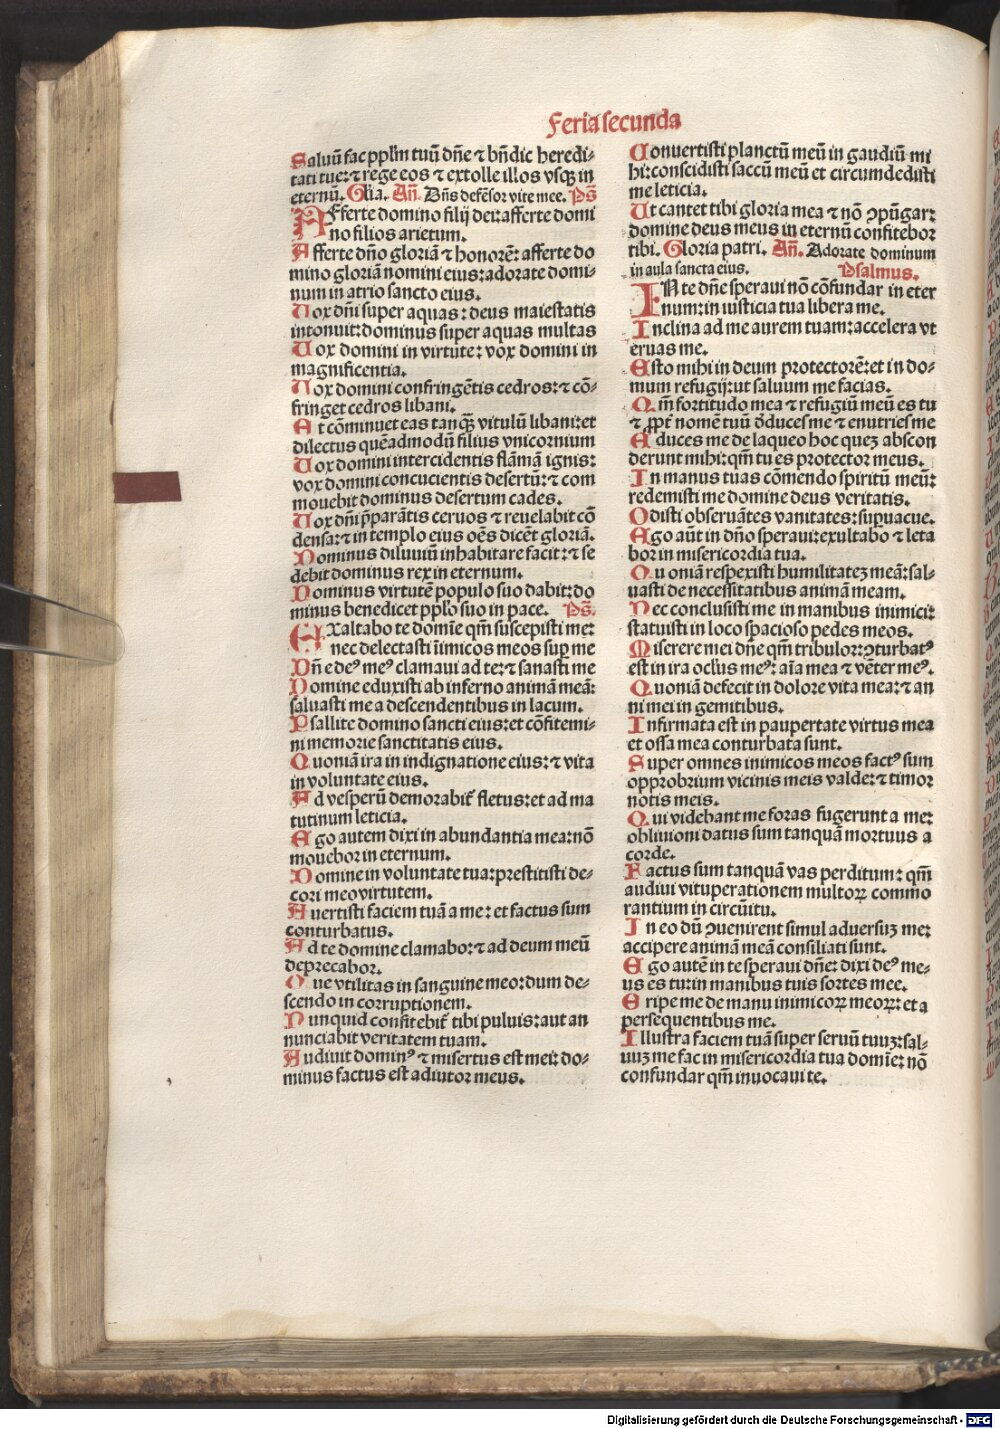 Feria secunda
Saluū fac pplm̄ tuū dn̄e ⁊ bn̄dic heredi⸗
tati tue: ⁊ rege eos ⁊ extolle illos vsqꝫ in
eternū. Gl̄ia. Añ. Dn̄s defensor vite mee. Ps̄
AFferte domino filij dei: afferte domi
no filios arietum.
Afferte dn̄o gloriā ⁊ honorē: afferte do
mino gloriā nomini eius: adorate domi⸗
num in atrio sancto eius.
Uox dn̄i super aquas: deus maiestatis
intonuit: dominus super aquas multas
Uox domini in virtute: vox domini in
magnificentia.
Uox domini confringētis cedros: ⁊ cō⸗
fringet cedros libani.
Et cōminuet eas tanqꝫ vitulū libani: et
dilectus quēadmodū filius vnicornium
Uox domini intercidentis flāmā ignis:
vox domini concucientis desertū: ⁊ com
mouebit dominus desertum cades.
Uox dn̄i p̄parātis ceruos ⁊ reuelabit cō
densa: ⁊ in templo eius oēs dicēt gloriā.
Dominus diluuiū inhabitare facit: ⁊ se
debit dominus rex in eternum.
Dominus virtutē populo suo dabit: do
minus benedicet pplo suo in pace. Ps̄.
EXaltabo te domīe qm̄ suscepisti me:
nec delectasti īimicos meos sup me
Dn̄e deꝰ meꝰ clamaui ad te: ⁊ sanasti me
Domine eduxisti ab inferno animā meā:
saluasti me a descendentibus in lacum.
Psallite domino sancti eius: et cōfitemi⸗
ni memorie sanctitatis eius.
Quoniā ira in indignatione eius: ⁊ vita
in voluntate eius.
Ad vesperū demorabit̄ fletus: et ad ma
tutinum leticia.
Ego autem dixi in abundantia mea: nō
mouebor in eternum.
Domine in voluntate tua: prestitisti de⸗
cori meo virtutem.
Auertisti faciem tuā a me: et factus sum
conturbatus.
Ad te domine clamabo: ⁊ ad deum meū
deprecabor.
Que vtilitas in sanguine meo: dum de⸗
scendo in corruptionem.
Nunquid confitebit̄ tibi puluis: aut an
nunciabit veritatem tuam.
Audiuit dominꝰ ⁊ misertus est mei: do⸗
minus factus est adiutor meus.
Conuertisti planctū meū in gaudiū mi
hi: conscidisti saccū meū et circumdedisti
me leticia.
Ut cantet tibi gloria mea ⁊ nō ꝯpūgar:
domine deus meus in eternū confitebor
tibi. Gloria patri. Añ. Adorate dominum
in aula sancta eius. Psalmus.
IN te dn̄e speraui nō cōfundar in eter
num: in iusticia tua libera me.
Inclina ad me aurem tuam: accelera vt
eruas me.
Esto mihi in deum protectorē: et in do⸗
mum refugij: ut saluum me facias.
Qm̄ fortitudo mea ⁊ refugiū meū es tu
⁊ ꝓpt̄ nomē tuū d̄ducesme ⁊ enutriesme
Educes me de laqueo hoc quez abscon
derunt mihi: qm̄ tu es protector meus.
In manus tuas cōmendo spiritū meū:
redemisti me domine deus veritatis.
Odisti obseruātes vanitates: supuacue.
Ego aūt in dn̄o speraui: exultabo ⁊ leta
bor in misericordia tua.
Quoniā respexisti humilitatez meā: sal⸗
uasti de necessitatibus animā meam.
Nec conclusisti me in manibus inimici:
statuisti in loco spacioso pedes meos.
Miserere mei dn̄e qm̄ tribulor: ꝯturbatꝰ
est in ira oclūs meꝰ: aīa mea ⁊ vēter meꝰ.
Quoniā defecit in dolore vita mea: ⁊ an
ni mei in gemitibus.
Infirmata est in paupertate virtus mea
et ossa mea conturbata sunt.
Super omnes inimicos meos factꝰ sum
opprobrium vicinis meis valde: ⁊ timor
notis meis.
Qui videbant me foras fugerunt a me:
obliuioni datus sum tanquā mortuus a
corde.
Factus sum tanquā vas perditum: qm̄
audiui vituperationem multoꝝ commo
rantium in circūitu.
In eo dū ꝯuenirent simul aduersuz me:
accipere animā meā consiliati sunt.
Ego autē in te speraui dn̄e: dixi deꝰ me⸗
us es tu: in manibus tuis sortes mee.
Eripe me de manu inimicoꝝ meoꝝ: et a
persequentibus me.
Illustra faciem tuā super seruū tuuz: sal⸗
uuz me fac in misericordia tua domīe: nō
confundar qm̄ inuocaui te.
Digitalisierung gefördert durch die Deutsche Forschungsgemeinschaft - DFG